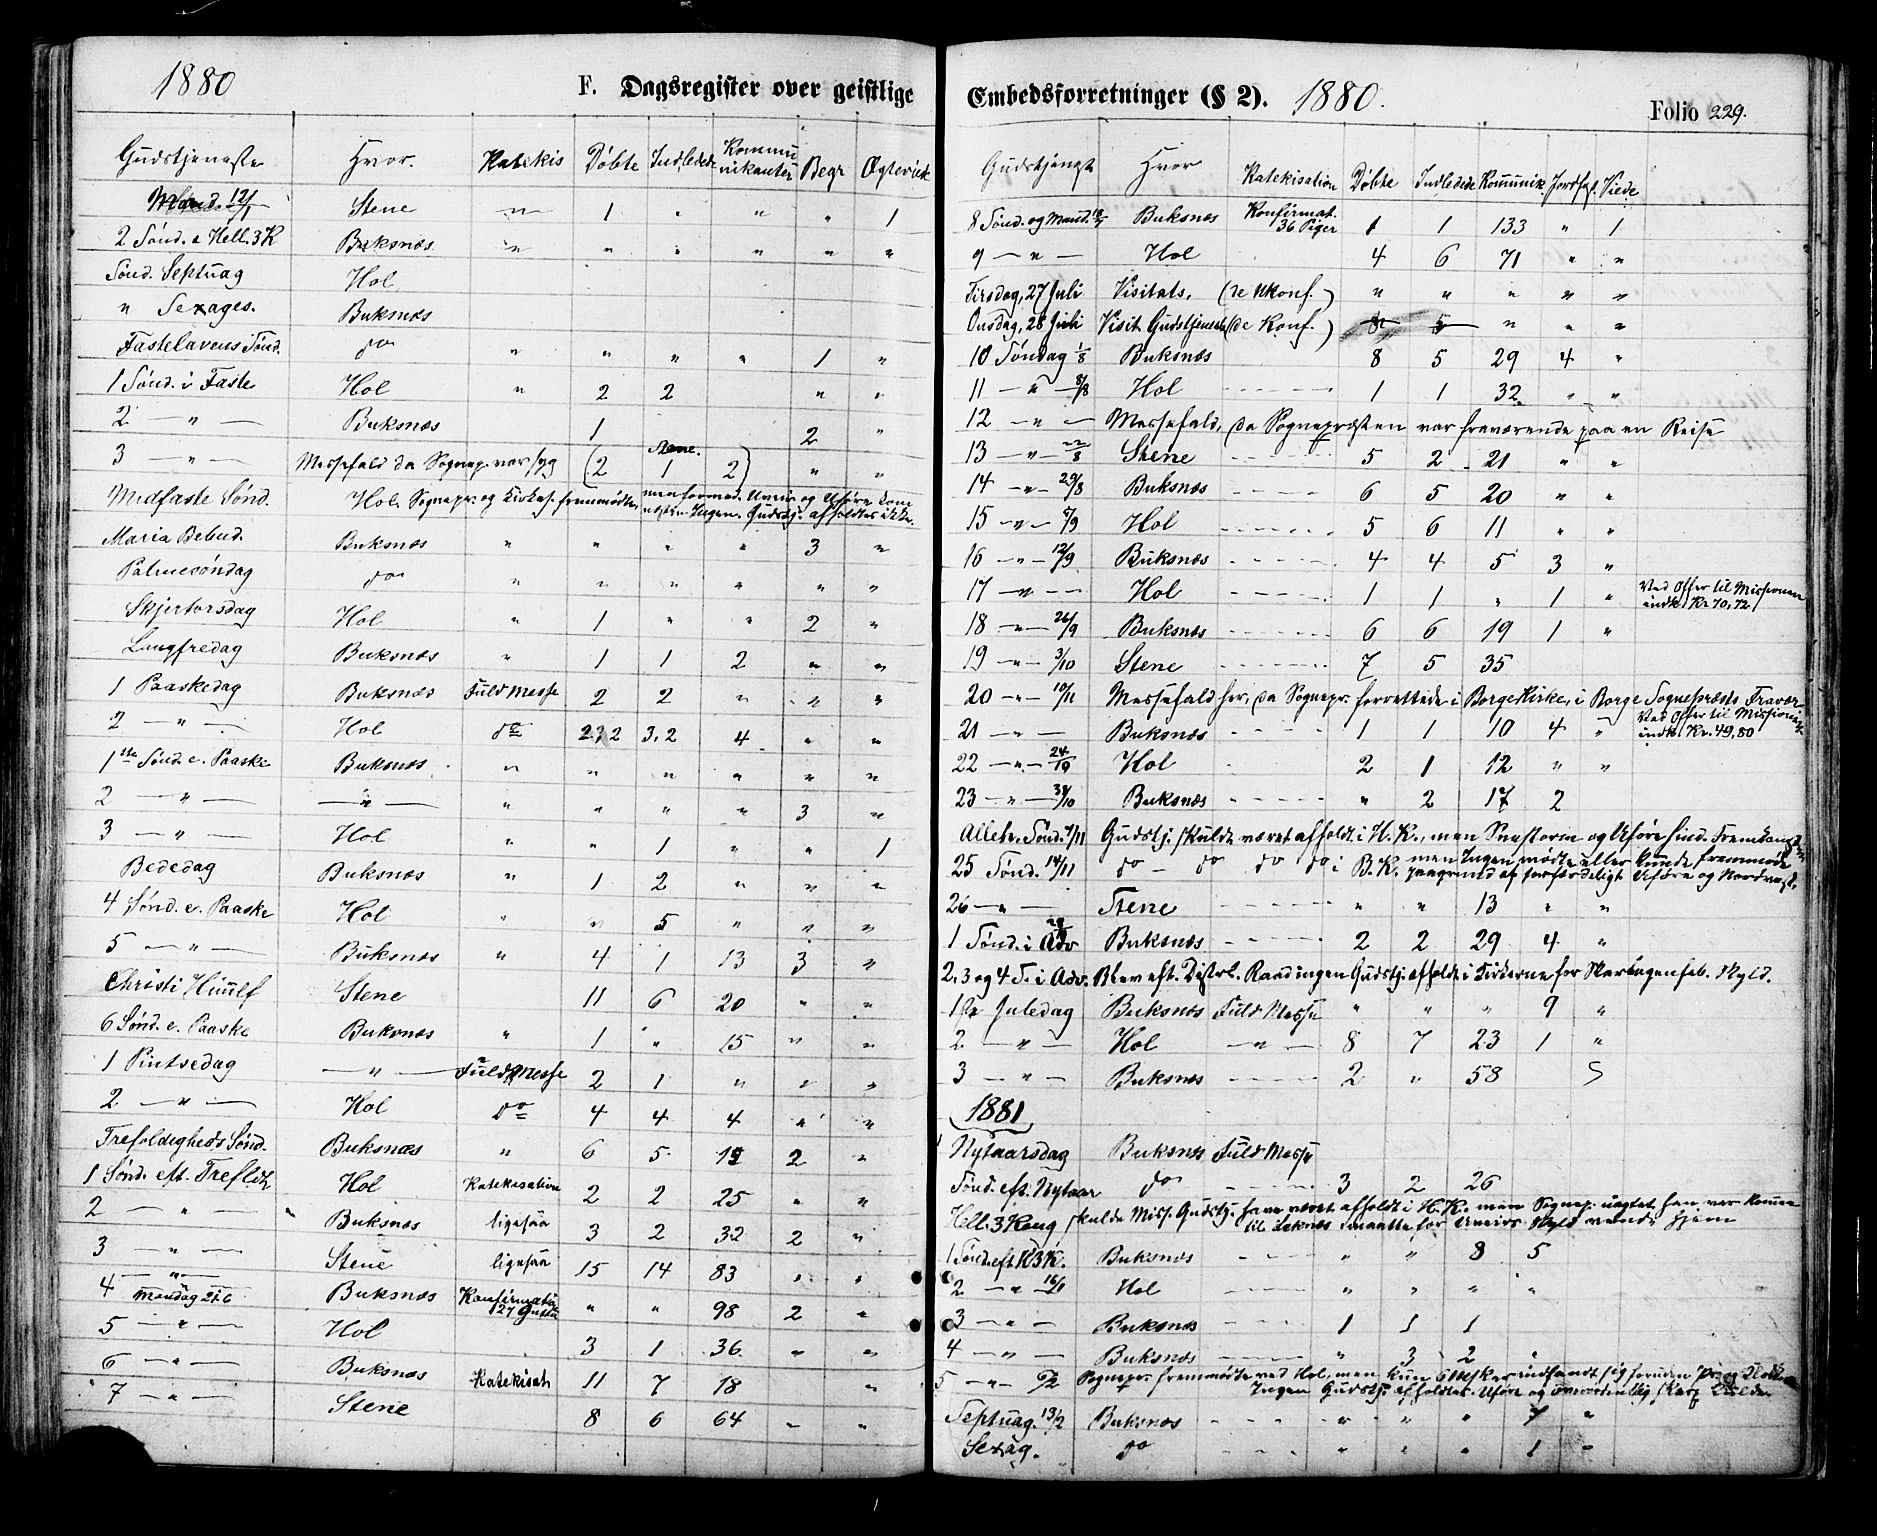 1880
F. Dagsregister over geistlige
Gudstjeneste Hvor. Katekis Döbte Indledede Kommunikanter Begr Ægteviede
Mand. 12/1 Stene " 1 " " " 1
2 Sönd. e Hell. 3 K Buksnæs " " " " " "
Sönd. Septuag Hol
" Sexages. Buksnæs
Fastelavens Sönd. do " " " " 1 "
1 Sönd. i Faste Hol " 2 2 " "
2 — " — Buksnæs 1 2 "
3 — " — Messefald da Sognep. var syg (2 Stene. 1 2) " "
Midfaste Sönd. Hol. Sognepr. og Kirkes. fremmödte, men formed. Uveir og Uföre kom
næsten Ingen. Gudstj. afholdtes ikke.
Maria Bebud. Buksnæs " " " " 3 "
Palmesöndag do " " " " " "
Skjertorsdag Hol " 1 " " 2 "
Langfredag Buksnæs " 1 1 2 " "
1 Paaskedag Buksnæs Fuld Messe 2 2 " " "
2 — " — Hol do 2,2 3,2 4 " "
1ste Sönd. e. Paaske Buksnæs " " " " " "
2 — " — — " — " " " " 3 "
3 — " — Hol " " 1 " " 1
Bededag Buksnæs " 1 2 " " "
4 Sönd. e. Paaske Hol " " 5 " " "
5 — " — Buksnæs " 4 1 13 3 "
Christi Himlf Stene 11 6 20 " "
6 Sönd. e. Paaske Buksnæs " 1 " 15 " "
1 Pintsedag — " — Fuld Messe 2 1 " " "
2 — " — Hol do 4 4 4 " "
Trefoldigheds Sönd. Buksnæs " 6 5 2 "
1 Sönd. eft. Trefldh Hol Katekisation 2 2 25 " "
2 — " — Buksnæs ligesaa 3 2 32 2 "
3 — " — Stene ligesaa 15 14 83 " "
4 — " — Mandag 21/6 Buksnæs Konfirmation 27 Gutter " " 98 2 "
5 — " — Hol 3 1 36 " "
6 — " — Buksnæs Katekisat 11 7 18 "
7 — " — Stene 8 6 64 " "
Embedsforretninger (§ 2). 1880.
Folio 229.
Gudstjenest Hvor Katekisation Döbte Indledede Kommunik. Jordfæst. Viede
8 Sönd. og Mand. Buksnæs Konfirmat. 36 Piger 1 1 133 " 1
9 — " — Hol 4 6 71 " "
Tirsdag, 27 Juli Visitats. (de Ukonf.) " " " " "
Onsdag, 28 Juli Visit. Gudstjeneste (de Konf.) 8 5 " " "
10 Söndag 1/8 Buksnæs 8 5 29 4 "
11 — " — 8/8 Hol 1 1 32 " "
12 — " — Messefald, da Sognepræsten var fraværende paa en Reise
13 — " — 22/8 Stene 5 2 21 " "
14 — " — 29/8 Buksnæs 6 5 20 " "
15 — " — 5/9 Hol 5 6 11 " "
16 — " — 12/9 Buksnæs 4 4 5 3 "
17 — " — Hol 1 1 " 1 " Ved Offer til Missionen
indk. Kr. 70,72.
18 — " — 26/9 Buksnæs 6 6 19 1 "
19 — " — 3/10 Stene 7 5 35
20 — " — 10/11 Messefald her, da Sognepr. forrettede i Borge Kirke, i Borge Sognepræsts Fravær
21 — " — Buksnæs 1 1 10 4 " Ved Offer til Missionen
indk. Kr. 49,80
22 — " — 24/10 Hol 2 1 12 " "
23 — " — 31/10 Buksnæs " 2 17 2
Alleh. Sönd. 7/11 Gudstj. skulde været afholdt i H. K., men Snestorm og Uföre hind. Fremkomst
25 Sönd. 14/11 do — do do do i B. K. men Ingen mödte eller kunde fremmöde
paagrund af forfærdeligt Uföre og Nordvest.
26 — " — Stene " " 13 " "
1 Sönd. i Adv Buksnæs 2 2 29 4 "
2, 3 og 4 S. i Adv. Blev eft. Distrl. Raad ingen Gudstj. afholdt i Kirkerne for Skarlagenfeb. Skyld.
1ste Juledag Buksnæs Fuld Messe " " " 9 "
2 — " — Hol — " — 8 7 23 1 "
3 — " — Buksnæs 2 " 58
1881
Nytaarsdag Buksnæs Fuld Messe
Sönd. eft. Nytaar do 3 2 26
Hell. 3 Kong skulde Miss. Gudstj. have været afholdt i H. K. men Sognep. uagtet han var kommen
til Leknæs maatte for Uveirs Skyld vende hjem
1 Sönd. eft H3K. Buksnæs " " 8 5
2 — " — 16/1 Hol " " " "
3 — " — Buksnæs 1 1 1
4 — " — Buksnæs " 3 2 "
5 — " — 6/2 Sognepr. fremmödte ved Hol, men kun 6 Msker indfandt sig foruden Pr. og Klokker
Ingen Gudstj. afholdtes. Uföre og overordentlig skarp Kulde
Septuag. 13/2 Buksnæs " " " 7 "
Sexag. do " " " 1 "